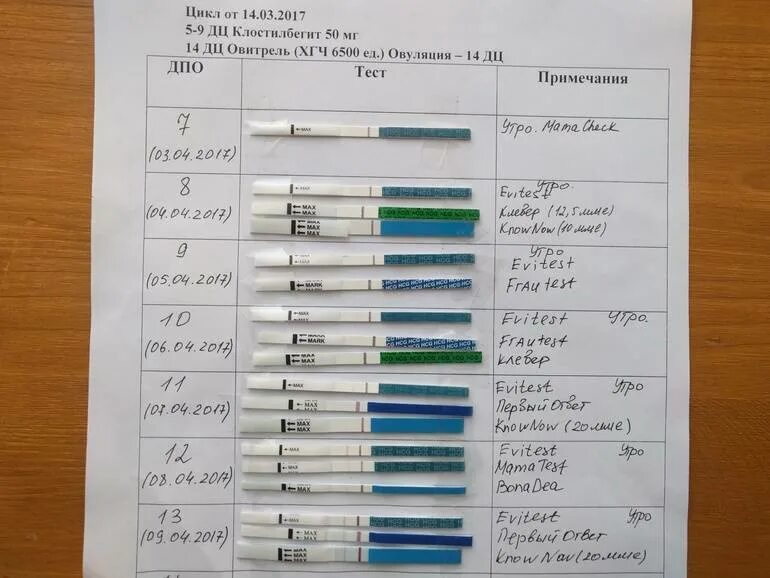 Цикл от 14.03.2017
5-9 ДЦ Клостилбегит 50 мг
14 ДЦ Овитрель (ХГЧ 6500 ед.) Овуляция – 14 ДЦ
ДПО Тест Примечания
7
(03.04.2017)
MAX
Утро. MamaCheck
8
(04.04.2017)
MAX
MAX
MAX
MAX
HCG HCG HCG HCG HCG
Утро.
Evitest
Клевер (12,5 мме)
KnowNow (10 мме)
9
(05.04.2017)
MAX
MARK
HCG HCG HCG HCG HCG
Утро
Evitest
FrAutest
10
(06.04.2017)
MAX
MARK
MAX
HCG HCG HCG HCG HCG
Evitest Утро.
FrAutest
Клевер
11
(07.04.2017)
MAX
MAX
MAX
Evitest Утро
Первый Ответ
KnowNow (20 мме)
12
(08.04.2017)
MAX
MAX
MAX
Evitest Утро
MamaTest
BonaDea
13
(09.04.2017)
MAX
MAX
MAX
Evitest Утро
Первый Ответ
KnowNow (20 мме)